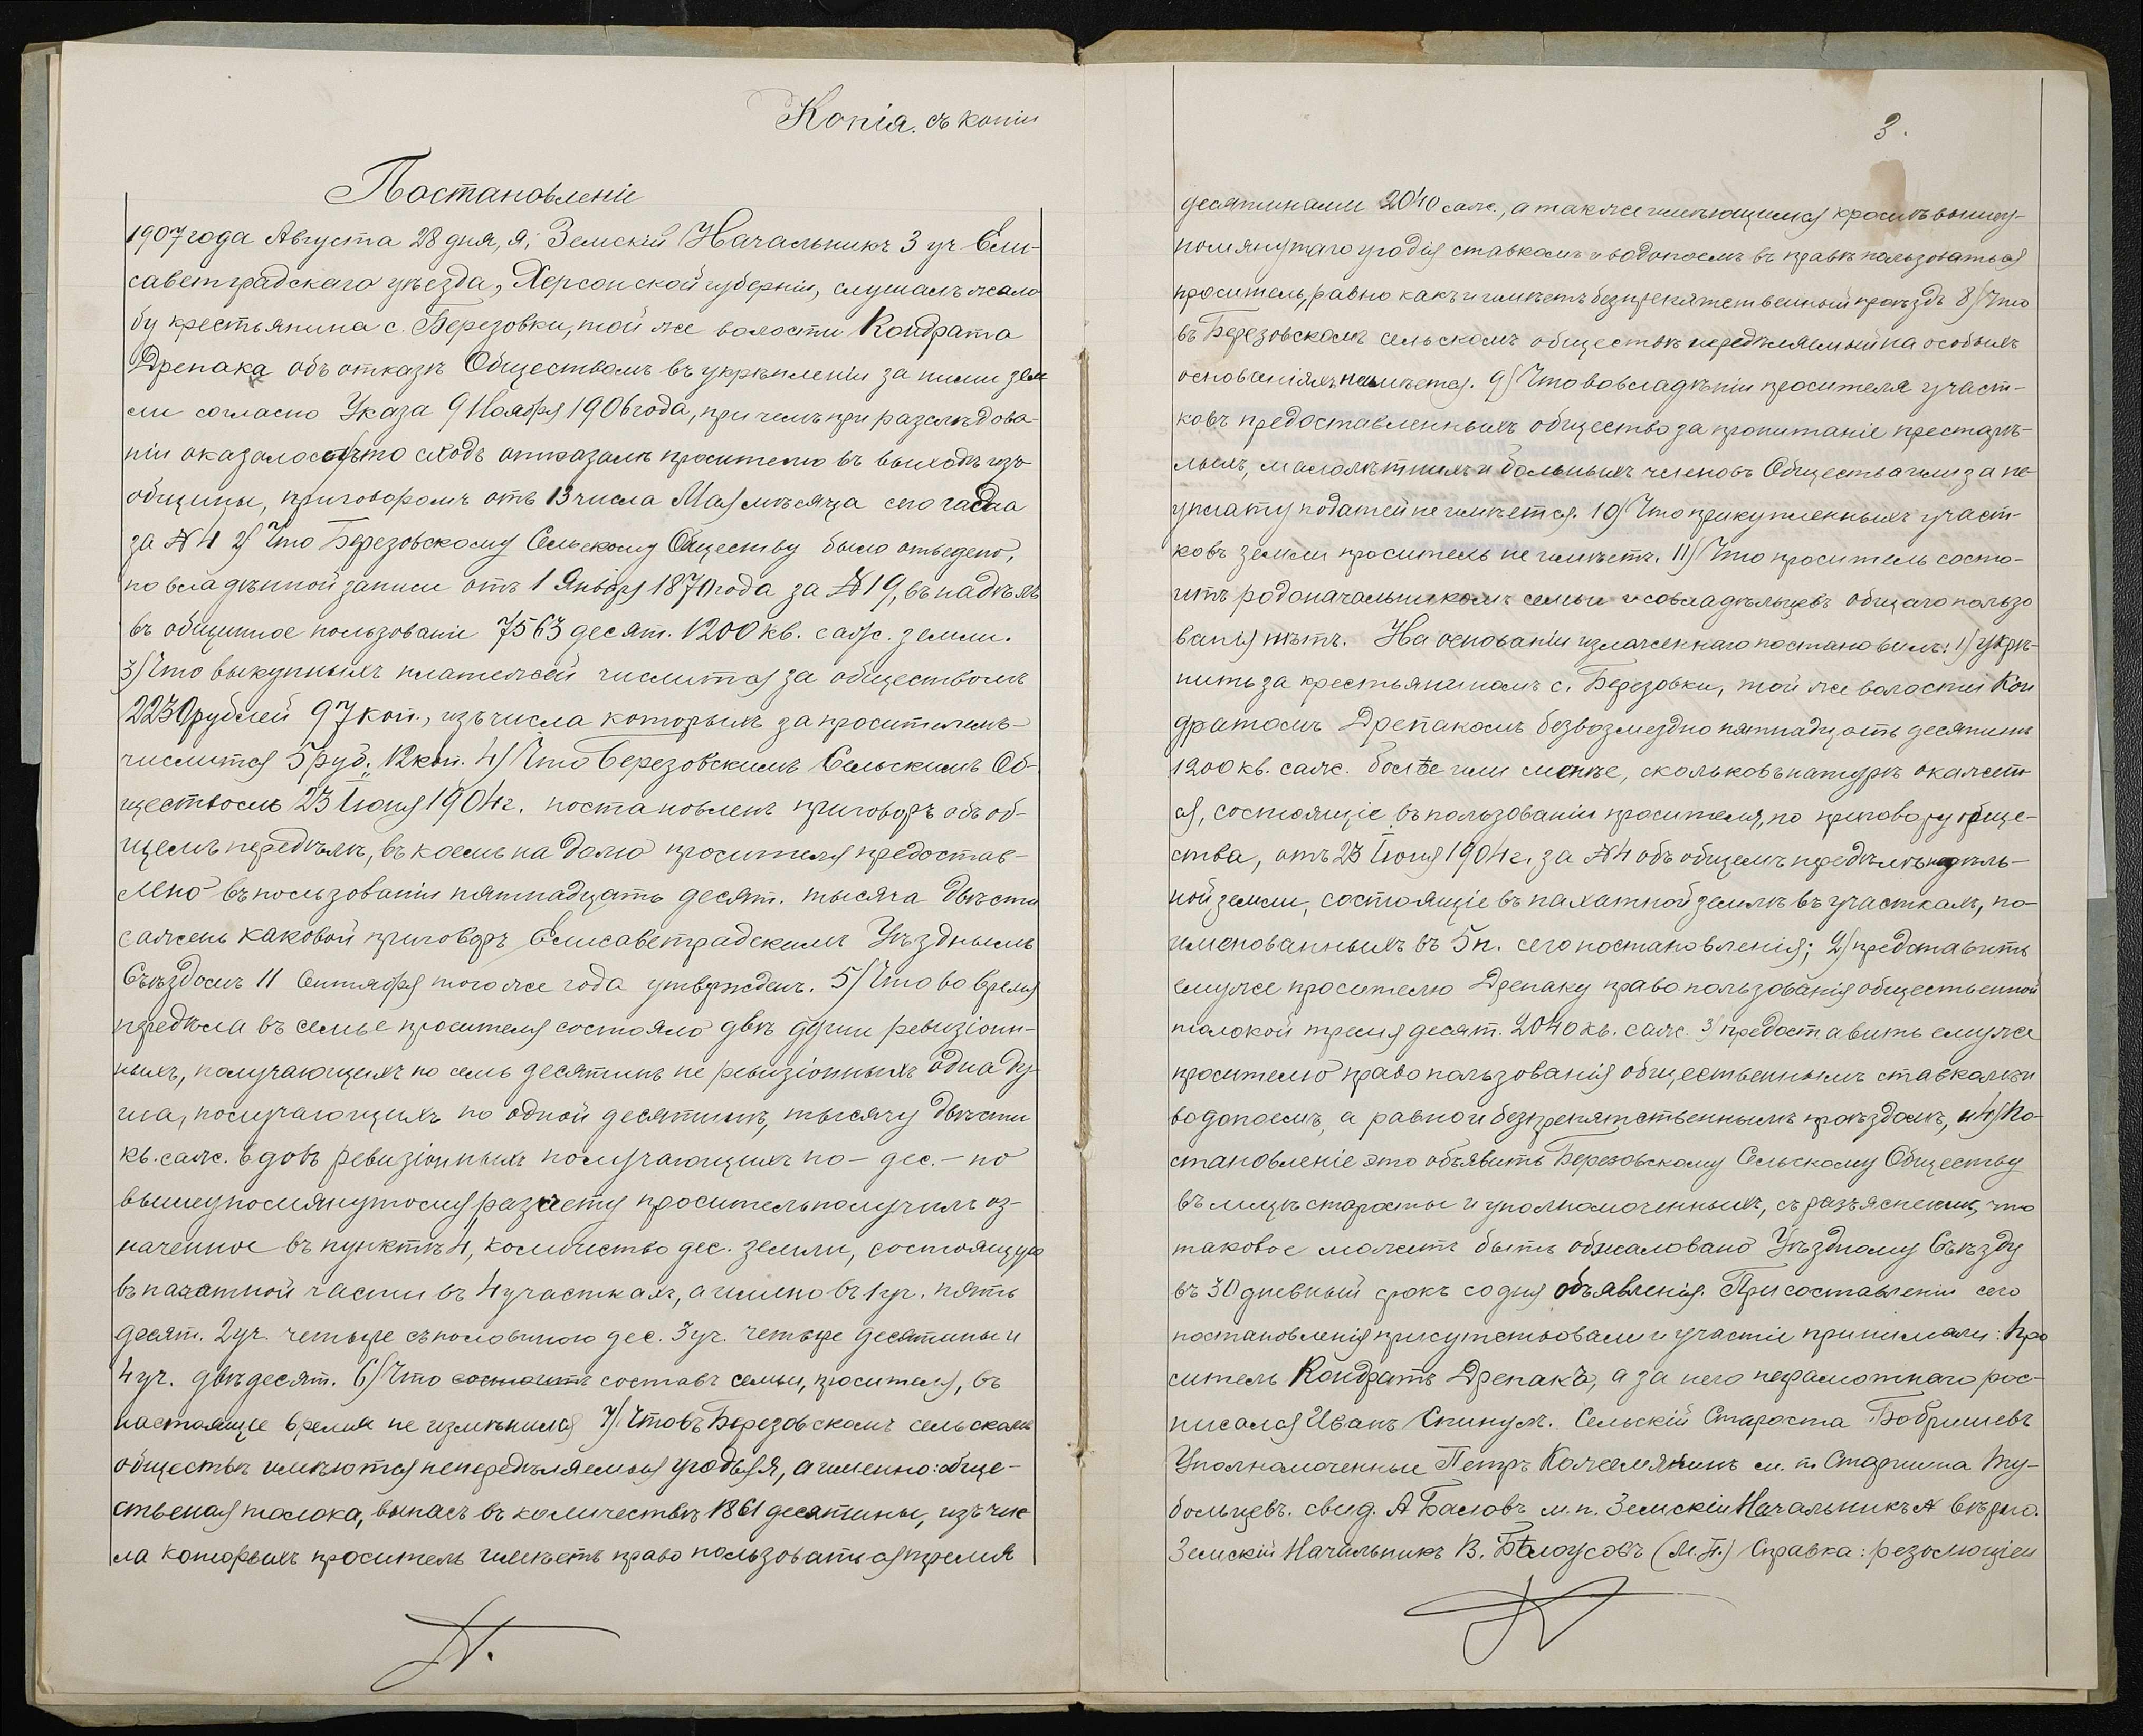 Копія съ копіи
Постановленіе
1907 года Августа 28 дня, я, Земскій Начальникъ 3 уч Ели-
саветградскаго уѣзда, Херсонской губерніи, слушалъ жало
бу крестьянина с. Березовки, той же волости Кондрата
Дрепака объ отказѣ Обществомъ въ укрѣпленіи за ними зем
ли согласно Указа 9 Ноября 1906 года, при чемъ при разслѣдова-
ніи оказалось что сходъ отказалъ просителю въ выходѣ изъ
общины, приговоромъ отъ 13 числа Мая мѣсяца сего года
за № 4 2) Что Березовскому Сельскому Обществу было отведено,
по владѣнной записи отъ 1 Января 1870 года за № 19, въ надѣлъ
въ общинное пользованіе 7563 десят. 1200 кв. саж. земли.
3) Что выкупныхъ платежей числится за обществомъ
2230 рублей 97 коп., изъ числа которыхъ за просителемъ-
числится 5 руб. 12 коп. 4) Что Березовскимъ Сельскимъ Об-
ществомъ 23 Іюня 1904 г. постановленъ приговоръ объ об-
щемъ передѣлѣ, въ коемъ на долю просителя предостав-
лено въ пользованіи пятнадцать десят. тысяча двѣсти
сажень каковой приговоръ Елисаветградскимъ Уѣзднымъ
Съѣздомъ 11 Сентября того же года утвержденъ. 5) Что во время
передѣла въ семье просителя состояло двѣ души ревизіон-
ныхъ, получающихъ по семь десятинъ не ревизіонныхъ одна ду-
ша, получающихъ по одной десятинѣ, тысячу двѣсти
кв. саж. вдовъ ревизіонныхъ получающихъ по - дес. - по
вышеупомянутому разчету проситель получилъ оз-
наченное въ пунктѣ 4, количество дес. земли, состоящую
въ пахатной части въ 4 участкахъ, а именно въ 1 уч. пять
десят. 2 уч. четыре съ половиною дес. 3 уч. четыре десятины и
4 уч. двѣ десят. 6) Что состоитъ составъ семьи, просителя, въ
настоящее время не измѣнился 7) Что въ Березовскомъ сельскомъ
обществѣ имѣются непередѣляемыя угодья, а именно: обще-
ственая толока, выпасъ въ количествѣ 1861 десятины, изъ чис
ла которыхъ проситель имѣетъ право пользоваться тремя
3.
десятинами 2040 саж., а также имѣющимся кромѣ вышеу-
помянутаго угодія ставкомъ и водопоемъ въ правѣ пользоваться
проситель, равно какъ и имѣетъ безпрепятственный проѣздъ 8) Что
въ Березовскомъ сельскомъ обществѣ передѣляемый на особыхъ
основаніяхъ не имѣется. 9) Что во владѣніи просителя участ-
ковъ предоставленныхъ общество за пропитаніе престарѣ-
лыхъ, малолѣтнихъ и больныхъ членовъ Общества или за не
уплату податей не имѣется. 10) Что прикупленныхъ участ-
ковъ земли проситель не имѣетъ. 11) Что проситель состо-
итъ родоначальникомъ семьи и совладѣльцевъ общаго пользо
ванія нѣтъ. На основаніи изложеннаго постановилъ: 1) укрѣ-
пить за крестьяниномъ с. Березовки, той же волости Кон
дратомъ Дрепакомъ безвозмездно пятнадцать десятинъ
1200 кв. саж. болѣе или менѣе, сколько въ натурѣ окажет-
ся, состоящіе въ пользованіи просителя, по приговору обще-
ства, отъ 23 Іюня 1904 г. за № 4 объ общемъ передѣлѣ надѣль-
ной земли, состоящіе въ пахатной земли въ участкахъ, по-
именованныхъ въ 5 п. сего постановленія; 2) представить
ему же просителю Дрепаку право пользованія общественной
толокой тремя десят. 2040 кв. саж. 3) предоставить ему же
просителю право пользованія общественнымъ ставкомъ и
водопоемъ, а равно и безпрепятственнымъ проѣздомъ, и 4) По-
становленіе это объявить Березовскому Сельскому Обществу
въ лицѣ старосты и уполномоченныхъ, съ разъясненіемъ, что
таковое можетъ быть обжаловано Уѣздному Съѣзду
въ 30 дневный срокъ со дня объявленія. При составленіи сего
постановленія присутствовали и участіе принимали: про
ситель Кондратъ Дрепакъ, а за него неграмотнаго рос-
писался Иванъ Спинулъ. Сельскій Староста Бобришевъ
Уполномоченные Петръ Колсемякинъ м. п. Старшина Ту-
больцевъ. свид. А Баловъ м. п. Земскій Начальникъ А вѣрно.
Земскій Начальникъ В. Бѣлоусовъ (М. П.) Справка: резолюціей